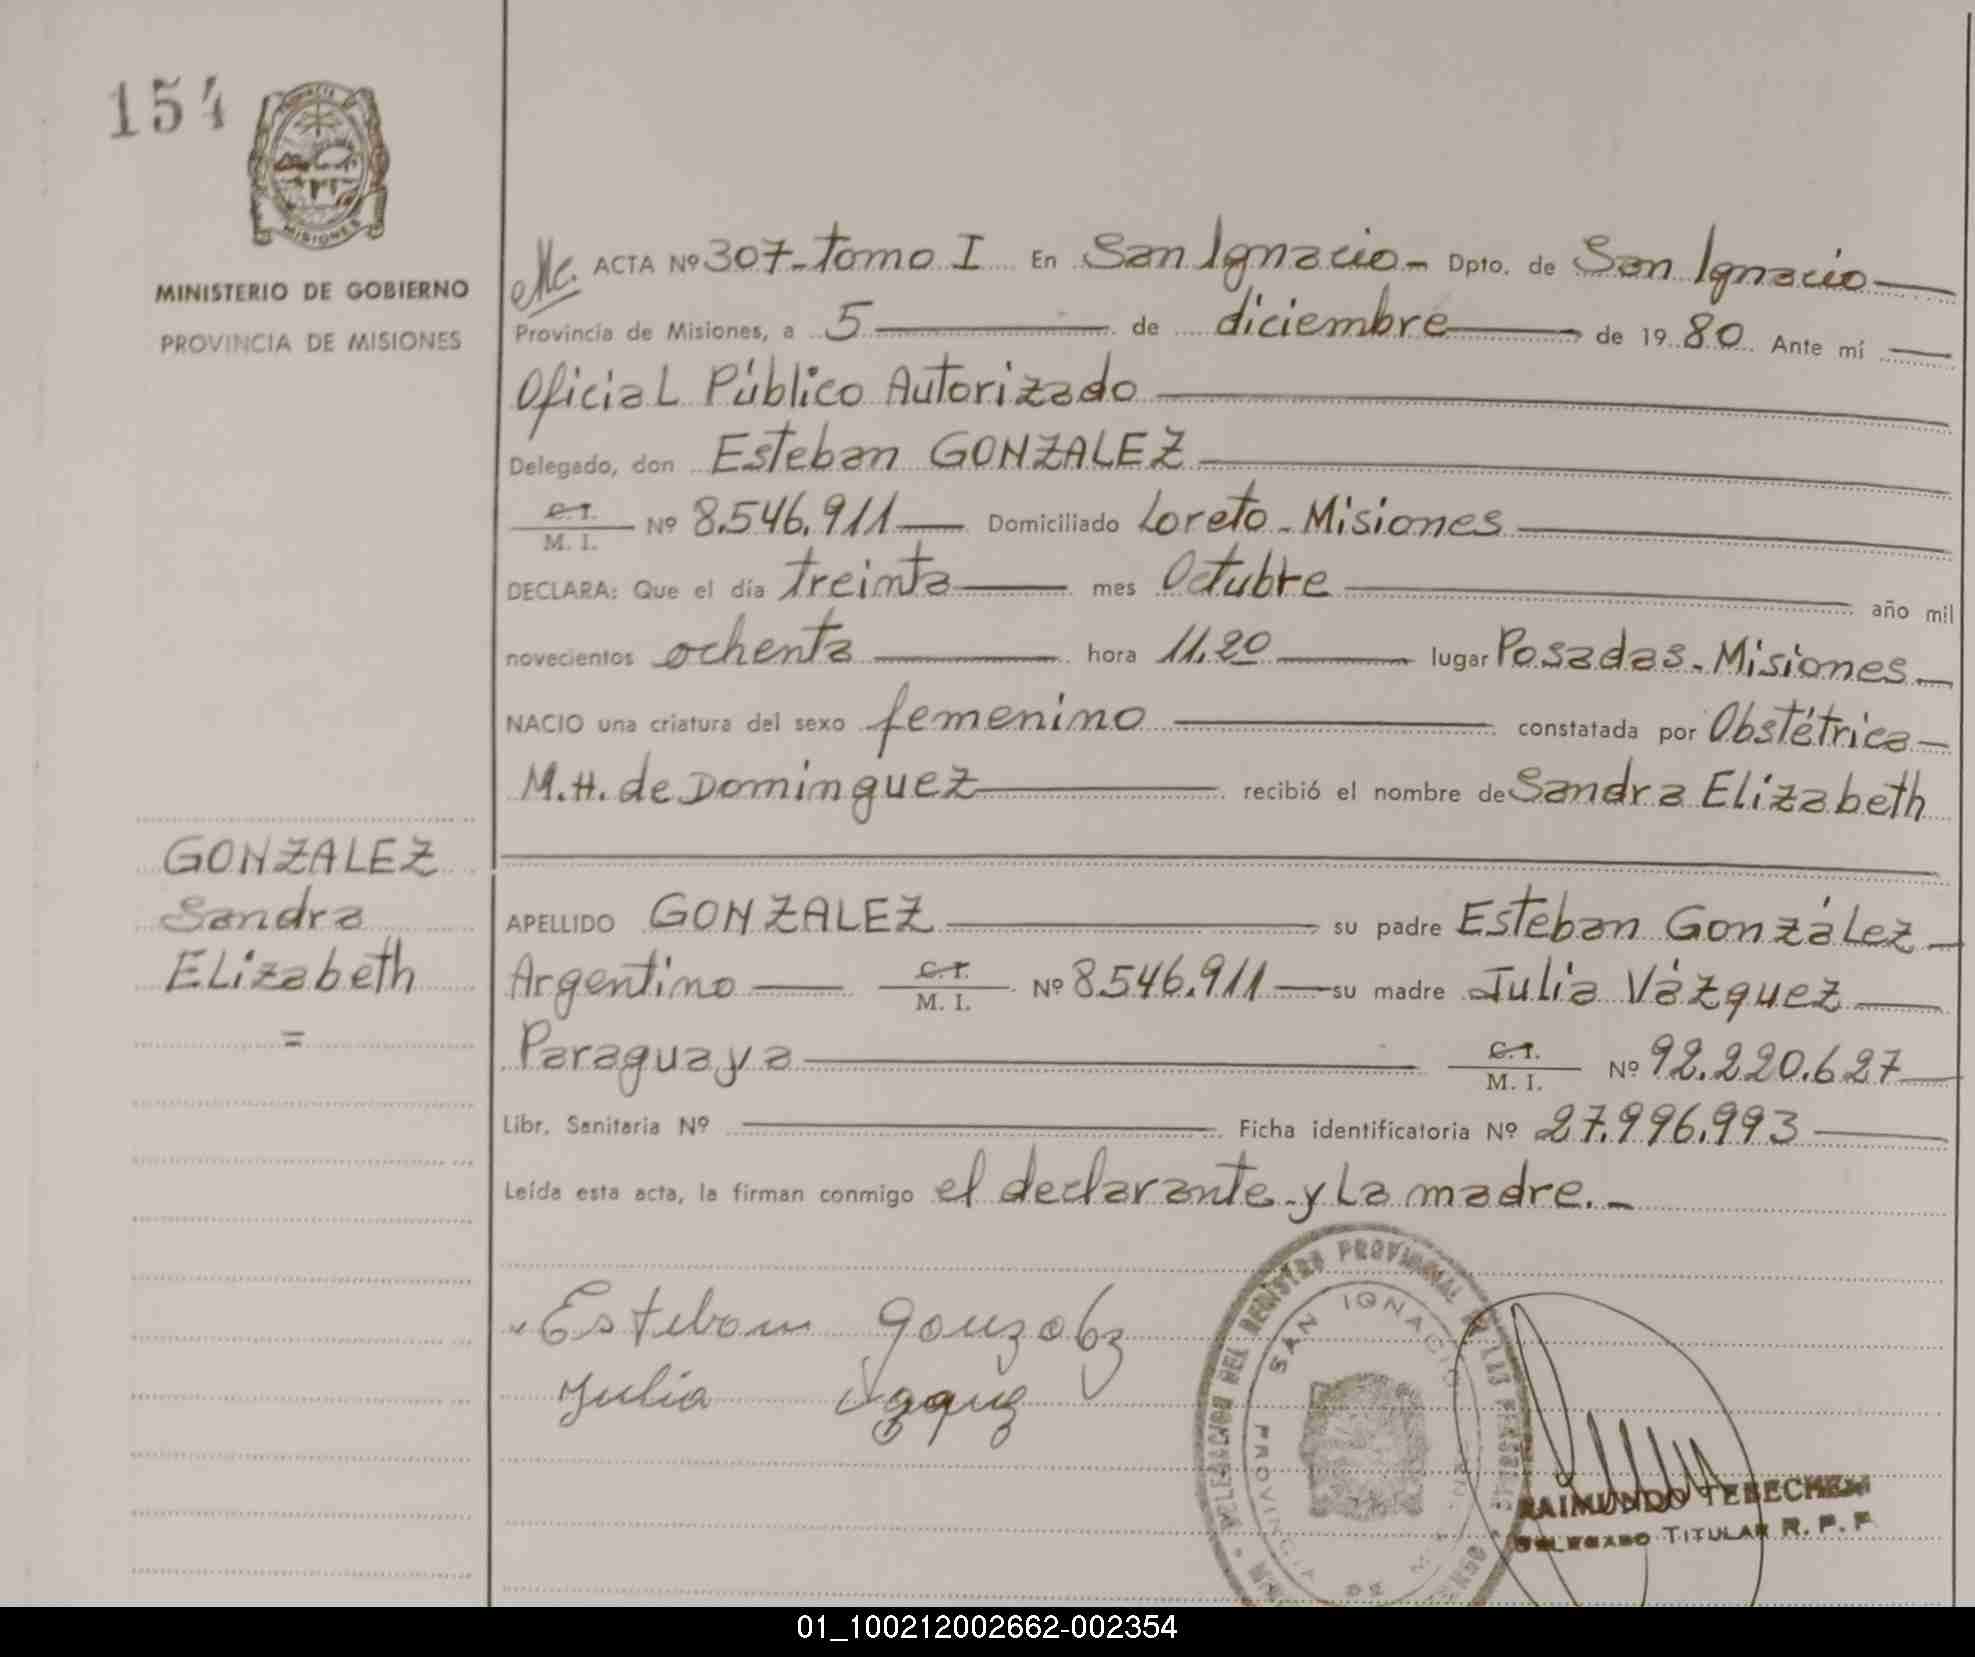 154
PROVINCIA DE
MISIONES
MINISTERIO DE GOBIERNO
PROVINCIA DE MISIONES
GONZALEZ
Sandra
ELizabeth
=
Mc. ACTA Nº 307-Tomo I En San Ignacio- Dpto. de San Ignacio
Provincia de Misiones, a 5 de diciembre de 1980. Ante mí
Oficial Público Autorizado
Delegado, don Esteban GONZALEZ
C.I.
M. I. Nº 8.546.911 Domiciliado Loreto - Misiones
DECLARA: Que el día treinta mes Octubre año mil
novecientos ochenta hora 11.20 lugar Posadas - Misiones.
NACIO una criatura del sexo femenino constatada por Obstétrica
M.H. de Dominguez recibió el nombre de Sandra Elizabeth
APELLIDO GONZALEZ su padre Esteban González
Argentino C.I. M. I. Nº 8.546.911 su madre Julia Vázquez
Paraguaya C.I. M. I. Nº 92.220.627
Libr. Sanitaria Nº Ficha identificatoria Nº 27.996.993
Leída esta acta, la firman conmigo el declarante y La madre.-
Esteban Gonzalez
Julia
DELEGACION DEL REGISTRO PROVINCIAL DE LAS PERSONAS
SAN IGNACIO
PROVINCIA DE
RAIMUNDO TEBECHEM
DELEGADO TITULAR R. P. P
01_100212002662-002354